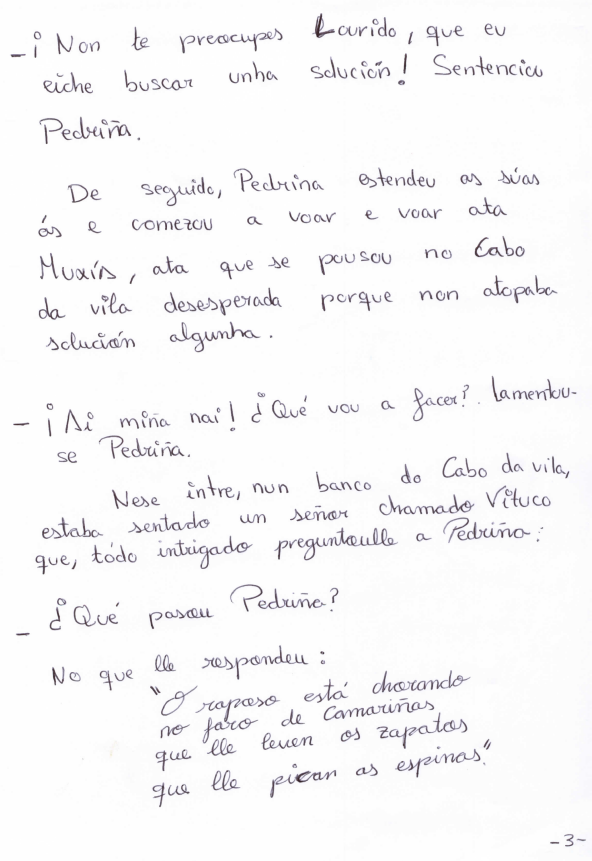 -¡Non te preocupes Lourido, que eu
eiche buscar unha solución! Sentenciou
Pedriña.
De seguido, Pedrina estendeu as súas
ás e comezou a voar e voar ata
Muxía, ata que se pousou no Cabo
da vila desesperada porque non atopaba
solución algunha.
- ¡Ai miña nai! ¿Qué vou a facer?. lamentou-
se Pedriña.
Nese intre, nun banco do Cabo da vila,
estaba sentado un señor chamado Vituco
que, tódo intrigado preguntoulle a Pedriña:
- ¿Qué pasou Pedriña?
No que lle respondeu:
"O raposo está chorando
no faro de Camariñas
que lle leven os zapatos
que lle pican as espinas."
-3-